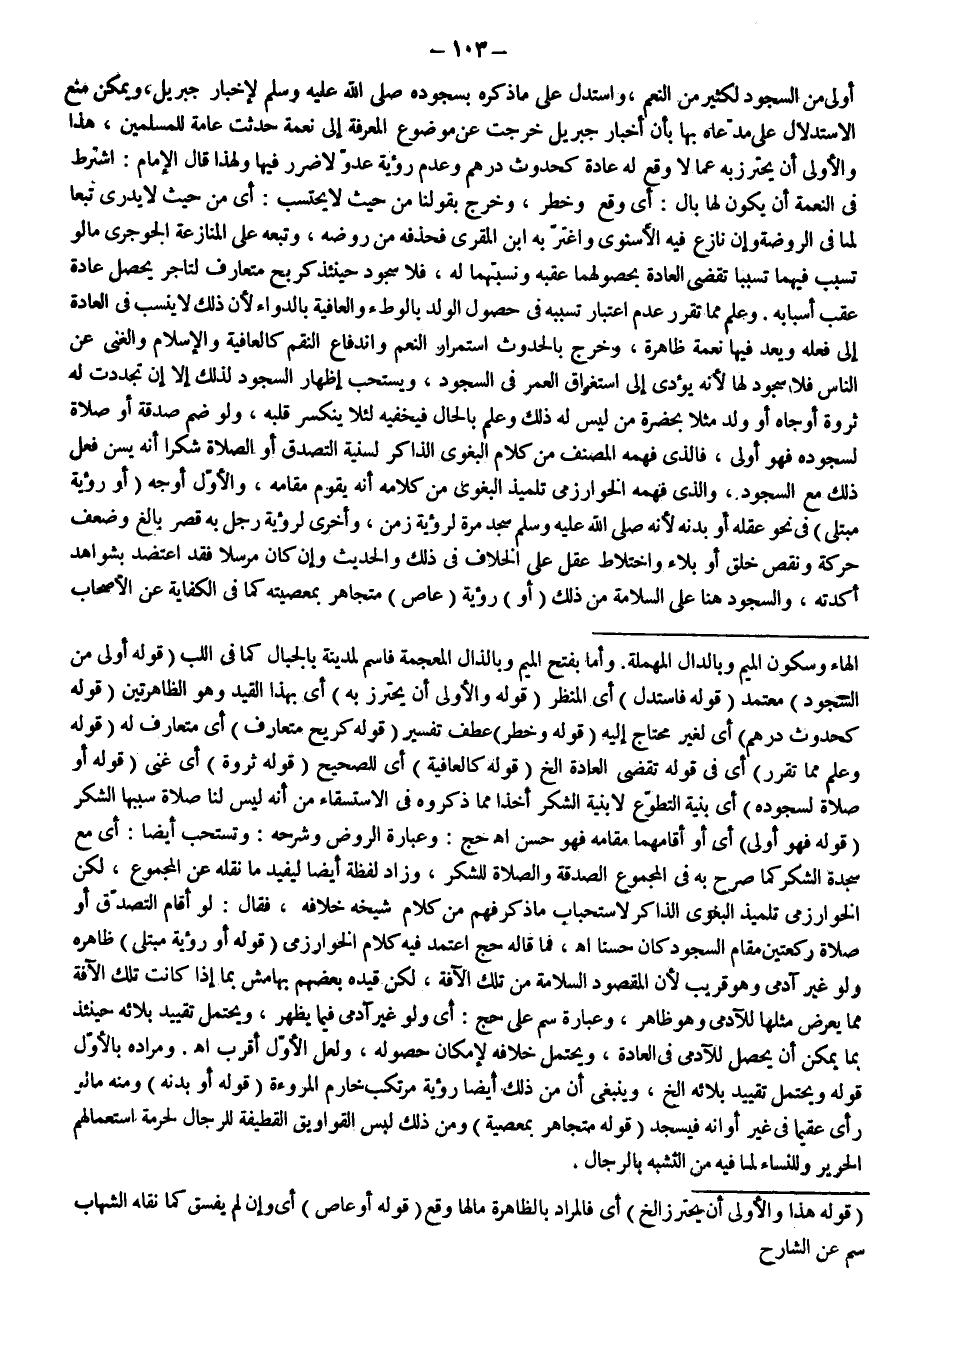 – ١٠٣ –
أولى من السجود لكثير من النعم ، واستدل على ماذكره بسجوده صلى الله عليه وسلم لإخبار جبريل، ويمكن منع
الاستدلال على مدّعاه بها بأن أخبار جبريل خرجت عن موضوع المعرفة إلى نعمة حدثت عامة للمسلمين ، هذا
والأولى أن يحترز به عما لا وقع له عادة كحدوث درهم وعدم رؤية عدوّ لاضرر فيها ولهذا قال الإمام : اشترط
فى النعمة أن يكون لها بال : أى وقع وخطر ، وخرج بقولنا من حيث لايحتسب : أى من حيث لايدرى تبعا
لما فى الروضة وإن نازع فيه الأسنوى واغترّ به ابن المقرى فحذفه من روضه ، وتبعه على المنازعة الجوجرى مالو
تسبب فيهما تسببا تقضى العادة بحصولهما عقبه ونسبتهما له ، فلا سجود حينئذ كربح متعارف لتاجر يحصل عادة
عقب أسبابه . وعلم مما تقرر عدم اعتبار تسببه فى حصول الولد بالوطء والعافية بالدواء لأن ذلك لاينسب فى العادة
إلى فعله ويعد فيها نعمة ظاهرة ، وخرج بالحدوث استمرار النعم واندفاع النقم كالعافية والإسلام والغنى عن
الناس فلا سجود لها لأنه يؤدى إلى استغراق العمر فى السجود ، ويستحب إظهار السجود لذلك إلا إن تجددت له
ثروة أوجاه أو ولد مثلا بحضرة من ليس له ذلك وعلم بالحال فيخفيه لئلا ينكسر قلبه ، ولو ضم صدقة أو صلاة
لسجوده فهو أولى ، فالذى فهمه المصنف من كلام البغوى الذاكر لسنية التصدق أو الصلاة شكرا أنه يسن فعل
ذلك مع السجود ، والذى فهمه الخوارزمى تلميذ البغوى من كلامه أنه يقوم مقامه ، والأوّل أوجه ( أو رؤية
مبتلى ) فى نحو عقله أو بدنه لأنه صلى الله عليه وسلم سجد مرة لرؤية زمن ، وأخرى لرؤية رجل به قصر بالغ وضعف
حركة ونقص خلق أو بلاء واختلاط عقل على الخلاف فى ذلك والحديث وإن كان مرسلا فقد اعتضد بشواهد
أكدته ، والسجود هنا على السلامة من ذلك ( أو ) رؤية ( عاص ) متجاهر بمعصيته كما فى الكفاية عن الأصحاب
الهاء وسكون الميم وبالدال المهملة. وأما بفتح الميم وبالذال المعجمة فاسم لمدينة بالجبال كما فى اللب ( قوله أولى من
السجود ) معتمد ( قوله فاستدل ) أى المنظر ( قوله والأولى أن يحترز به ) أى بهذا القيد وهو الظاهرتين ( قوله
كحدوث درهم) أى لغير محتاج إليه ( قوله وخطر) عطف تفسير ( قوله كربح متعارف ) أى متعارف له ( قوله
وعلم مما تقرر) أى فى قوله تقضى العادة الخ ( قوله كالعافية ) أى للصحيح ( قوله ثروة ) أى غنى ( قوله أو
صلاة لسجوده ) أى بنية التطوّع لابنية الشكر أخذا مما ذكروه فى الاستسقاء من أنه ليس لنا صلاة سببها الشكر
( قوله فهو أولى) أى أو أقامهما مقامه فهو حسن اه حج : وعبارة الروض وشرحه : وتستحب أيضا : أى مع
سجدة الشكر كما صرح به فى المجموع الصدقة والصلاة للشكر ، وزاد لفظة أيضا ليفيد ما نقله عن المجموع ، لكن
الخوارزمى تلميذ البغوى الذاكر لاستحباب ماذكر فهم من كلام شيخه خلافه ، فقال : لو أقام التصدّق أو
صلاة ركعتين مقام السجود كان حسنا اه ، فما قاله حج اعتمد فيه كلام الخوارزمى ( قوله أو رؤية مبتلى ) ظاهره
ولو غير آدمى وهو قريب لأن المقصود السلامة من تلك الآفة ، لكن قيده بعضهم بهامش بما إذا كانت تلك الآفة
مما يعرض مثلها للآدمى وهو ظاهر ، وعبارة سم على حج : أى ولو غير آدمى فيما يظهر ، ويحتمل تقييد بلائه حينئذ
بما يمكن أن يحصل للآدمى فى العادة ، ويحتمل خلافه لإمكان حصوله ، ولعل الأوّل أقرب اه . ومراده بالأوّل
قوله ويحتمل تقييد بلائه الخ ، وينبغى أن من ذلك أيضا رؤية مرتكب خارم المروءة ( قوله أو بدنه ) ومنه مالو
رأى عقيما فى غير أوانه فيسجد ( قوله متجاهر بمعصية ) ومن ذلك لبس القواويق القطيفة للرجال لحرمة استعمالهم
الحرير وللنساء لما فيه من التشبه بالرجال .
( قوله هذا والأولى أن يحترز الخ ) أى فالمراد بالظاهرة مالها وقع ( قوله أو عاص ) أى وإن لم يفسق كما نقله الشهاب
سم عن الشارح